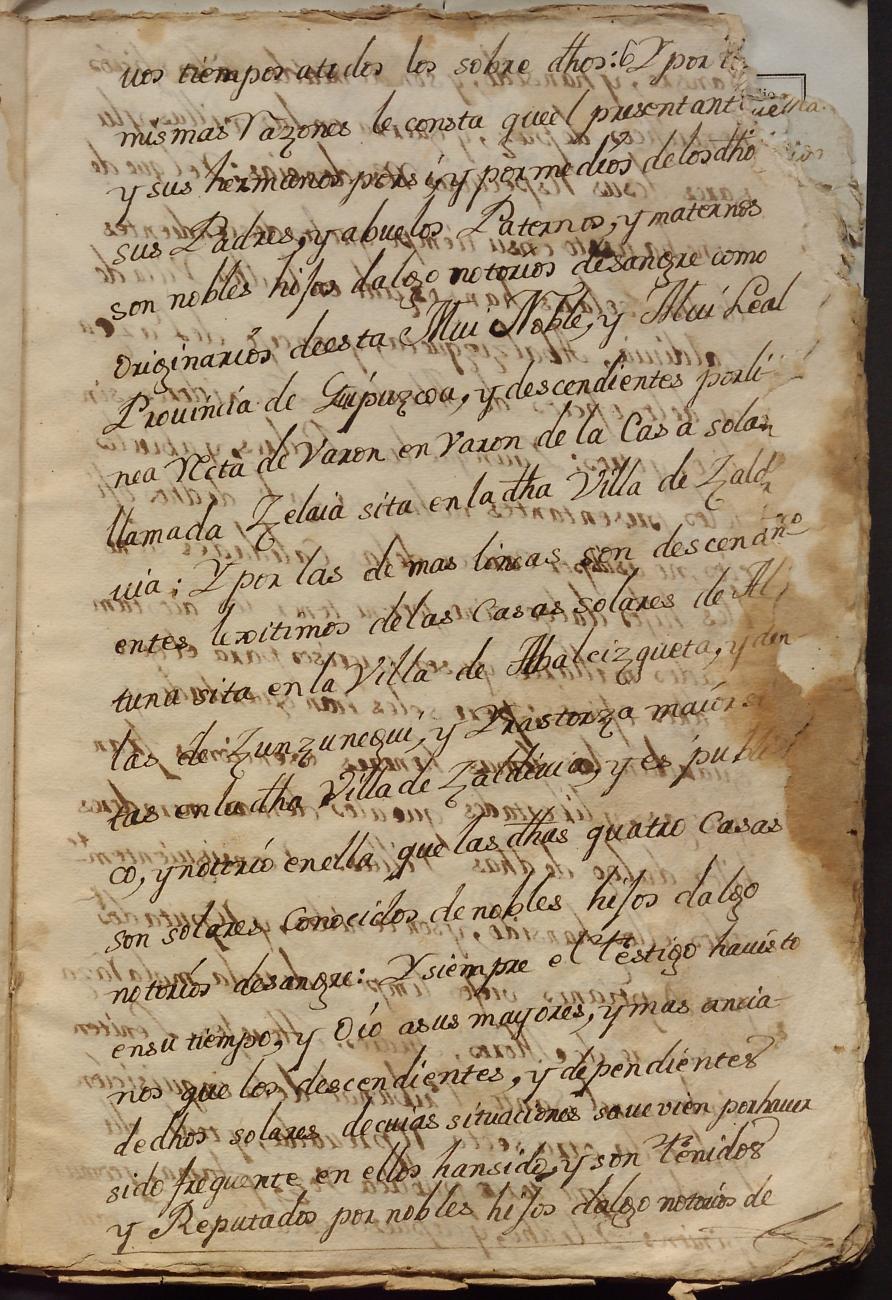 uos tiempos a todos los sobre dhos: 6 Y por
mismas Razones le consta que el presentant
y sus hermanos por si, y por medios de los dho
sus Padres, y abuelos Paternos, y maternos
son nobles hijos dalgo notorios de sangre como
Originarios de esta Mui Noble, y Mui Leal
Prouincia de Guipuzcoa, y descendientes por li
nea Recta de Varon en Varon de la Casa solar
llamada Zelaia sita en la dha Villa de Zald
uia; Y por las de mas lineas son descendi
entes lexitimos de las Casas solares de Al
tuna sita en la Villa de Abalcizqueta, y de
las de Zunzunegui, y Yrastorza maior si
tas en la dha Villa de Zaldiuia, y es publi
co, y notorio en ella que las dhas quatro Casas
son solares Conocidos de nobles hijos dalgo
notorios de sangre: Y siempre el testigo ha uisto
en su tiempo, y Oio a sus mayores, y mas ancia
nos que los descendientes, y dependientes
de dhos solares de cuias situaciones saue vien por hauer
sido frequente en ellos han sido, y son tenidos
y Reputados por nobles hijos dalgo notorios de